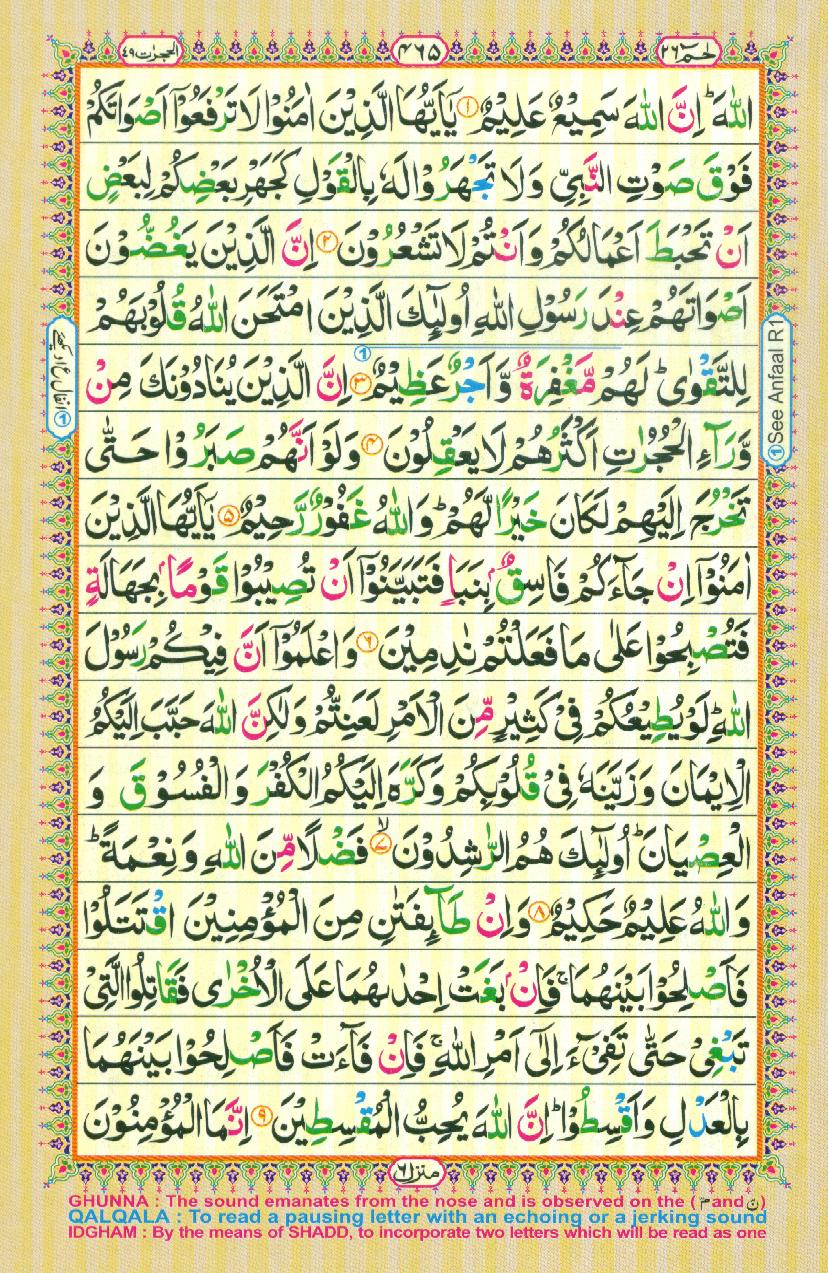 الحجرات ٤٩
٤٦٥
حٰم ٢٦
اللّٰهَ ؕ اِنَّ اللّٰهَ سَمِيْعٌ عَلِيْمٌ ۝١ يٰۤاَيُّهَا الَّذِيْنَ اٰمَنُوْا لَا تَرْفَعُوْۤا اَصْوَاتَكُمْ
فَوْقَ صَوْتِ النَّبِيِّ وَلَا تَجْهَرُوْا لَهٗ بِالْقَوْلِ كَجَهْرِ بَعْضِكُمْ لِبَعْضٍ
اَنْ تَحْبَطَ اَعْمَالُكُمْ وَاَنْتُمْ لَا تَشْعُرُوْنَ ۝٢ اِنَّ الَّذِيْنَ يَغُضُّوْنَ
اَصْوَاتَهُمْ عِنْدَ رَسُوْلِ اللّٰهِ اُولٰٓئِكَ الَّذِيْنَ امْتَحَنَ اللّٰهُ قُلُوْبَهُمْ
لِلتَّقْوٰى ؕ لَهُمْ مَّغْفِرَةٌ وَّاَجْرٌ عَظِيْمٌ ۝٣ اِنَّ الَّذِيْنَ يُنَادُوْنَكَ مِنْ
وَّرَآءِ الْحُجُرٰتِ اَكْثَرُهُمْ لَا يَعْقِلُوْنَ ۝٤ وَلَوْ اَنَّهُمْ صَبَرُوْا حَتّٰى
تَخْرُجَ اِلَيْهِمْ لَكَانَ خَيْرًا لَّهُمْ ؕ وَاللّٰهُ غَفُوْرٌ رَّحِيْمٌ ۝٥ يٰۤاَيُّهَا الَّذِيْنَ
اٰمَنُوْۤا اِنْ جَآءَكُمْ فَاسِقٌۢ بِنَبَاٍ فَتَبَيَّنُوْۤا اَنْ تُصِيْبُوْا قَوْمًاۢ بِجَهَالَةٍ
فَتُصْبِحُوْا عَلٰى مَا فَعَلْتُمْ نٰدِمِيْنَ ۝٦ وَاعْلَمُوْۤا اَنَّ فِيْكُمْ رَسُوْلَ
اللّٰهِ ؕ لَوْ يُطِيْعُكُمْ فِيْ كَثِيْرٍ مِّنَ الْاَمْرِ لَعَنِتُّمْ وَلٰكِنَّ اللّٰهَ حَبَّبَ اِلَيْكُمُ
الْاِيْمَانَ وَزَيَّنَهٗ فِيْ قُلُوْبِكُمْ وَكَرَّهَ اِلَيْكُمُ الْكُفْرَ وَالْفُسُوْقَ وَ
الْعِصْيَانَ ؕ اُولٰٓئِكَ هُمُ الرّٰشِدُوْنَ ۙ۝٧ فَضْلًا مِّنَ اللّٰهِ وَنِعْمَةً ؕ
وَاللّٰهُ عَلِيْمٌ حَكِيْمٌ ۝٨ وَاِنْ طَآئِفَتٰنِ مِنَ الْمُؤْمِنِيْنَ اقْتَتَلُوْا
فَاَصْلِحُوْا بَيْنَهُمَا ۚ فَاِنْۢ بَغَتْ اِحْدٰىهُمَا عَلَى الْاُخْرٰى فَقَاتِلُوا الَّتِيْ
تَبْغِيْ حَتّٰى تَفِيْٓءَ اِلٰۤى اَمْرِ اللّٰهِ ۚ فَاِنْ فَآءَتْ فَاَصْلِحُوْا بَيْنَهُمَا
بِالْعَدْلِ وَاَقْسِطُوْا ؕ اِنَّ اللّٰهَ يُحِبُّ الْمُقْسِطِيْنَ ۝٩ اِنَّمَا الْمُؤْمِنُوْنَ
① See Anfaal R1
منزل ٦
GHUNNA : The sound emanates from the nose and is observed on the ( مّ and نّ )
QALQALA : To read a pausing letter with an echoing or a jerking sound
IDGHAM : By the means of SHADD, to incorporate two letters which will be read as one